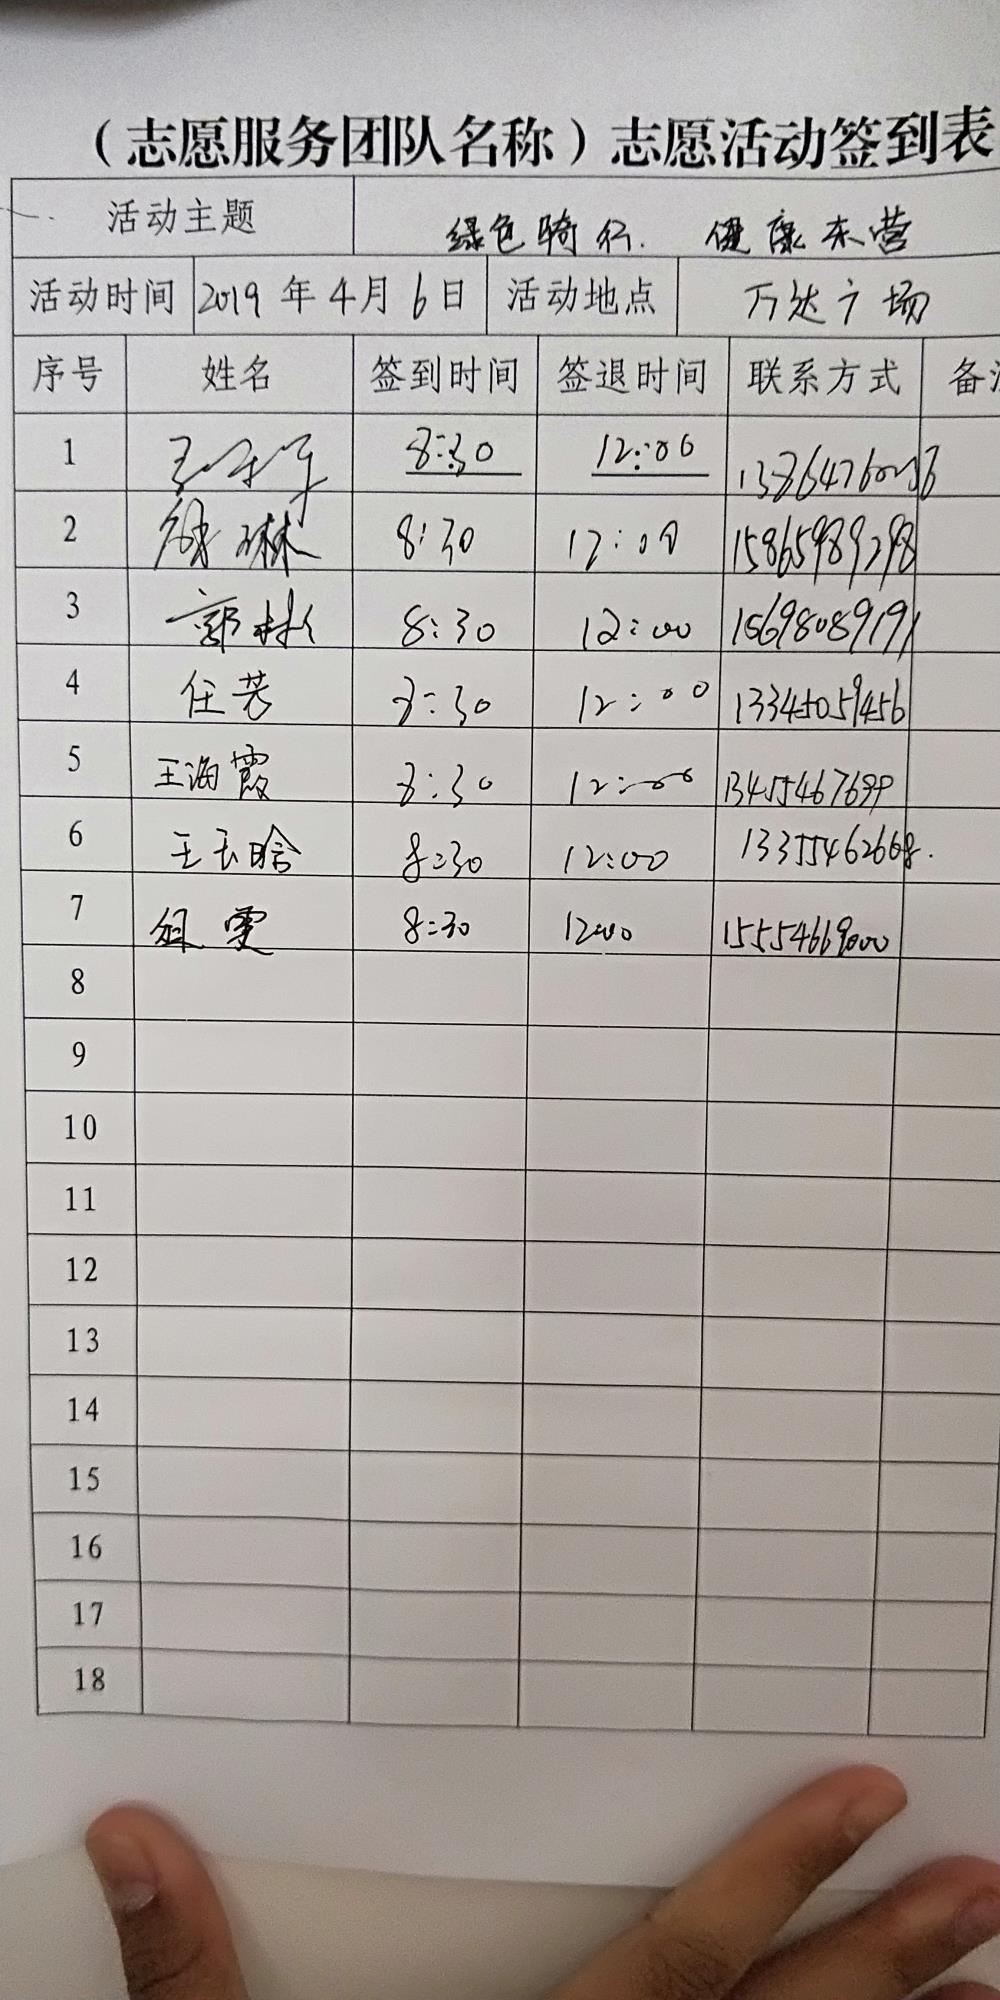 （志愿服务团队名称）志愿活动签到表
活动主题 绿色骑行. 健康东营
活动时间 2019年4月6日 活动地点 万达广场
序号 姓名 签到时间 签退时间 联系方式 备
1 8:30 12:00
2 徐琳 8:30 12:00 15865989298
3 郭彬 8:30 12:00 15698089191
4 任芳 8:30 12:00 13345059456
5 王海霞 8:30 12:00
6 王玉晗 8:30 12:00 13355462668.
7 8:30 12:00 15554669000
8
9
10
11
12
13
14
15
16
17
18